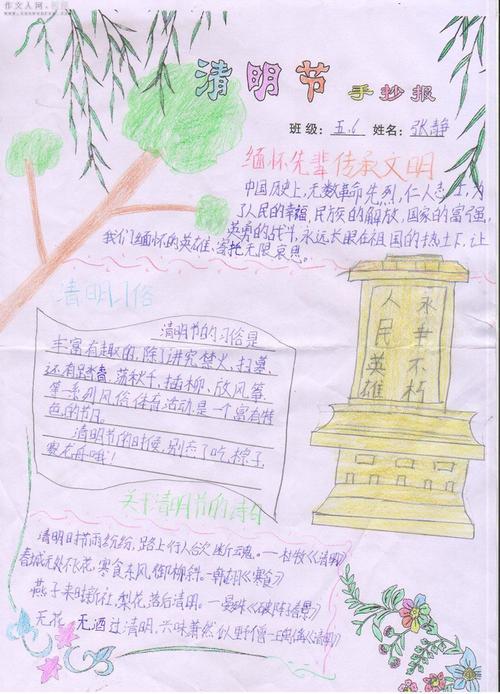 作文人网
清明节 手抄报
班级：五.6 姓名：张静
缅怀先辈传承文明
中国历史上,无数革命先烈,仁人志士,为
了人民的幸福,民族的解放,国家的富强,
英勇的战斗,永远长眠在祖国的热土下,让
我们缅怀的英雄,寄托无限哀思。
清明习俗
清明节的习俗是
丰富有趣的,除了讲究禁火、扫墓,
还有踏青、荡秋千、插柳、放风筝,
等一系列风俗体育活动,是一个富有特
色的节日。
清明节的时候,别忘了吃,粽子,
赛龙舟哦!
永垂不朽
人民英雄
关于清明节的诗句
清明时节雨纷纷,路上行人欲断魂。—杜牧《清明》
春城无处不飞花,寒食东风御柳斜。—韩翃《寒食》
燕子来时新社,梨花落后清明。—晏殊《破陈子春景》
无花 无酒过清明,兴味萧然似野僧—王禹偁《清明》